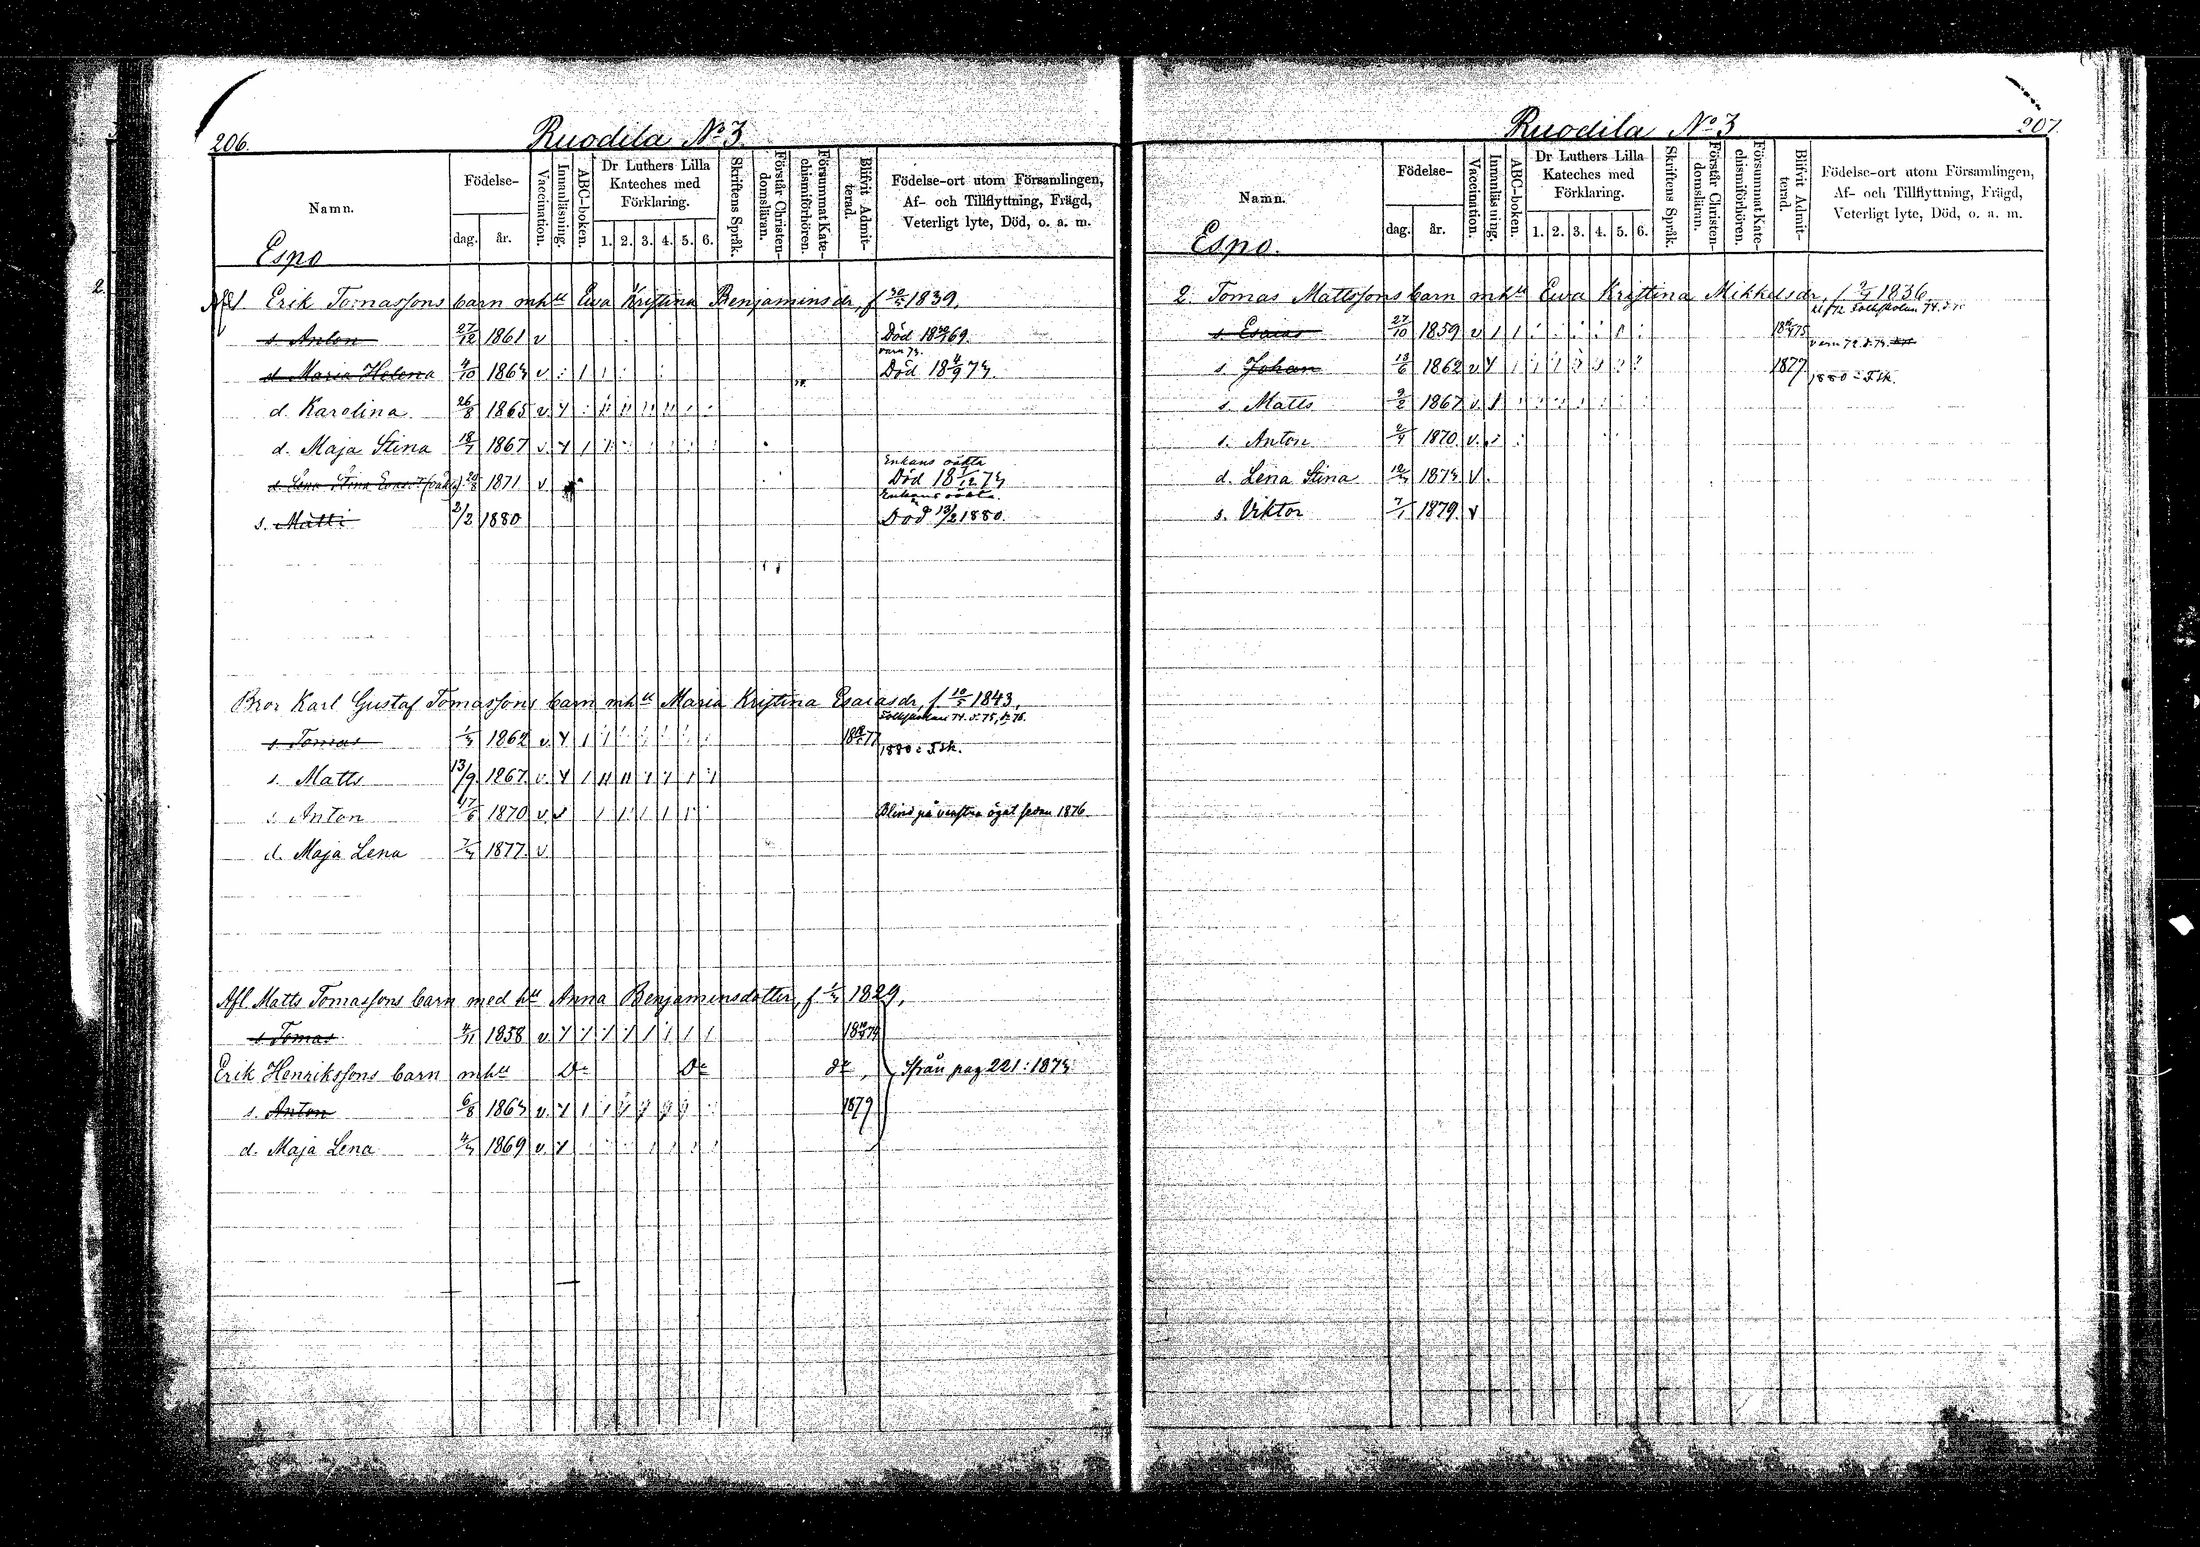 206.
Ruodila No 3.
Namn.
Födelse-
dag.
år.
Vaccination.
Innanläsning.
ABC-boken.
Dr Luthers Lilla Kateches med Förklaring.
1. 2. 3. 4. 5. 6.
Skriftens Språk.
Förstår Christendomsläran.
Försummat Katechismiförhören.
Blifvit Admitterad.
Födelse-ort utom Församlingen, Af- och Tillflyttning, Frägd, Veterligt lyte, Död, o. a. m.
Espo
Afl 1. Erik Tomassons barn mhu Ewa Kristina Benjaminsdr, f 30/5 1839.
s. Anton 27/12 1861 v Död 69.
d. Maria Helena 4/10 1863 v Död 18 4/9 73.
d. Karolina 26/8 1865 v
d. Maja Stina 18/7 1867 v
Enkans oäkta
d. Lena Stina 1871 v Död 18 73
Enkans oäkta.
s. Matti 2/2 1880 Död 13/2 1880.
Bror Karl Gustaf Tomassons barn mhu Maria Kristina Esaiasdr, f 10/5 1843,
s. Tomas 1/3 1862 v 77
1880 : Fsk.
s. Matts 13/9 1867 v
s. Anton 17/6 1870 v Blind på venstra ögat sedan 1876
d. Maja Lena 7/3 1877 v
Afl Matts Tomassons barn med hu Anna Benjaminsdotter, f 1/3 1829,
s. Tomas 4/11 1858 v 74
Erik Henrikssons barn mhu Do Do do, Ifrån pag 221 : 1873
s. Anton 6/8 1863 v 1879
d. Maja Lena 4/3 1869 v
Ruodila No 3
207.
Namn.
Födelse-
dag.
år.
Vaccination.
Innanläsning.
ABC-boken.
Dr Luthers Lilla Kateches med Förklaring.
1. 2. 3. 4. 5. 6.
Skriftens Språk.
Förstår Christendomsläran.
Försummat Katechismiförhören.
Blifvit Admitterad.
Födelse-ort utom Församlingen, Af- och Tillflyttning, Frägd, Veterligt lyte, Död, o. a. m.
Espo.
2. Tomas Mattssons barn mhu Ewa Kristina Mikkelsdr, f 1836
s. Esaias 27/10 1859 v 75
s. Johan 13/6 1862 v 1877
1880 : Fsk.
s. Matts 9/2 1867 v
s. Anton 1870 v
d. Lena Stina 1873 v
s. Viktor 7/1 1879 v